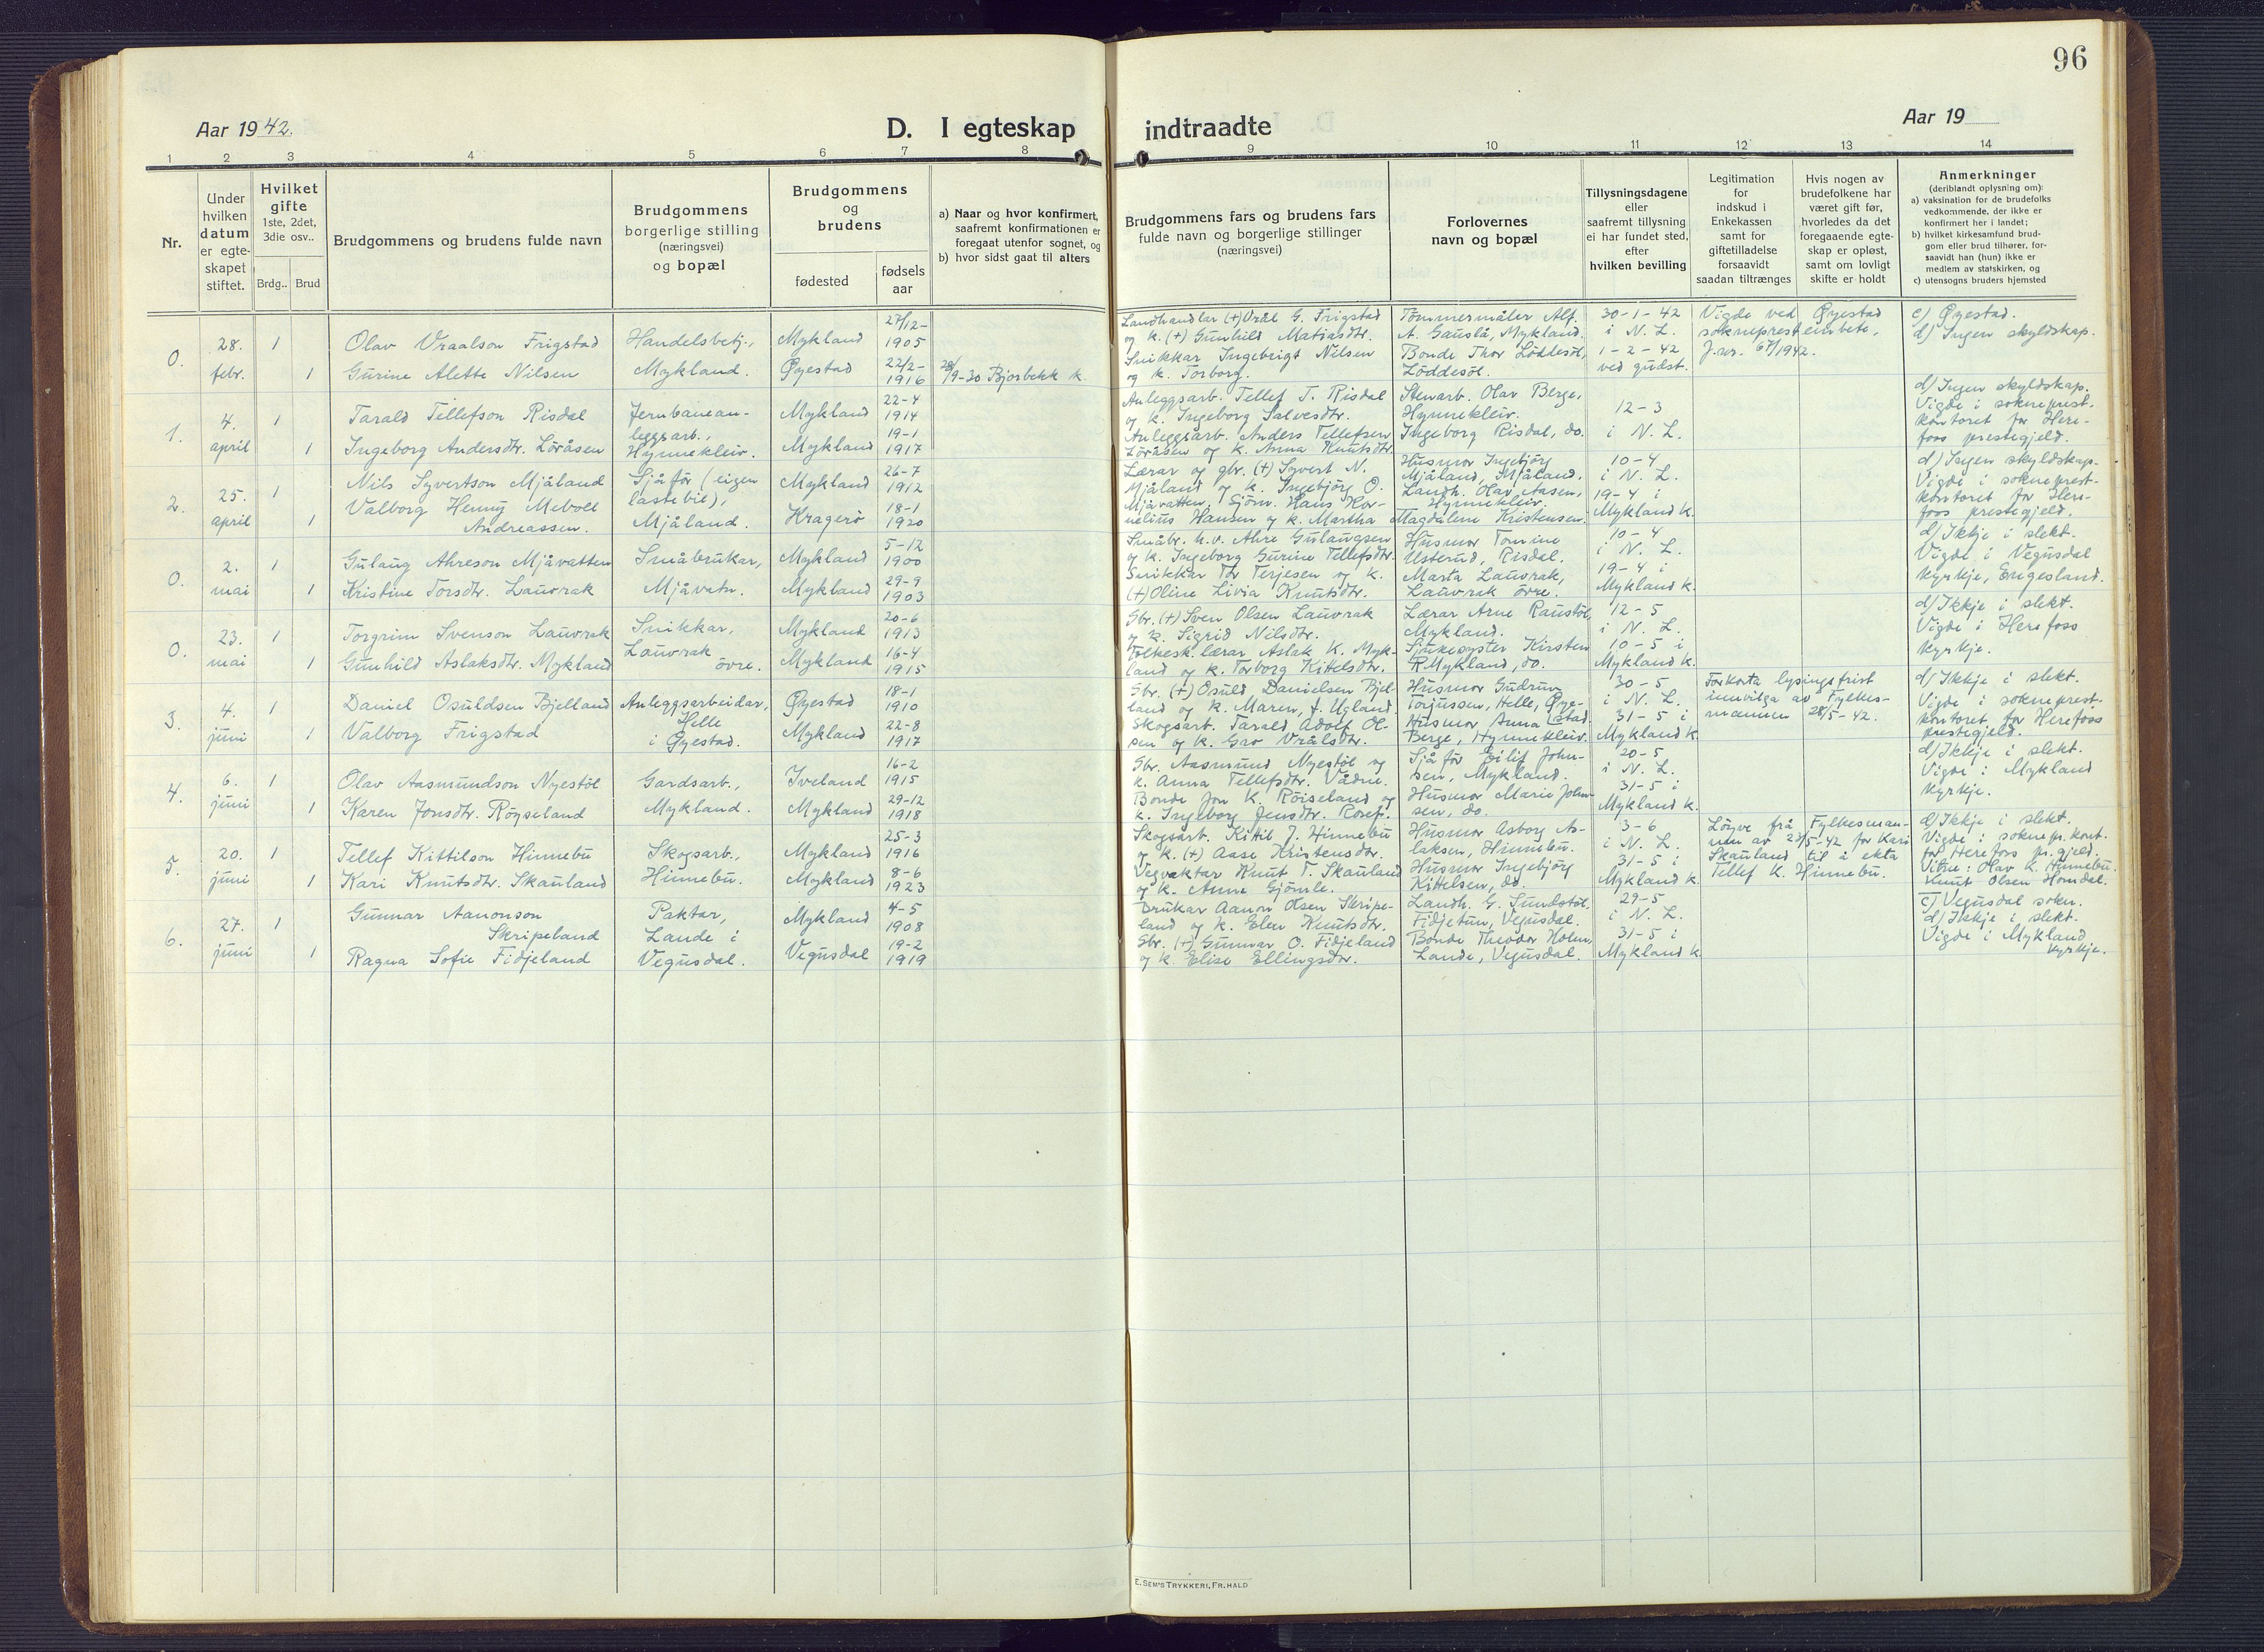 96
Aar 1942.
D. I egteskap
indtraadte
Aar 19
1 2 3 4 5 6 7 8 9 10 11 12 13 14
Nr.
Under
hvilken
datum
er egte-
skapet
stiftet.
Hvilket
gifte
1ste, 2det,
3die osv..
Brdg.. Brud
Brudgommens og brudens fulde navn
Brudgommens
borgerlige stilling
(næringsvei)
og bopæl
Brudgommens
og
brudens
fødested
fødsels
aar
a) Naar og hvor konfirmert,
saafremt konfirmationen er
foregaat utenfor sognet, og
b) hvor sidst gaat til alters
Brudgommens fars og brudens fars
fulde navn og borgerlige stillinger
(næringsvei)
Forlovernes
navn og bopæl
Tillysningsdagene
eller
saafremt tillysning
ei har fundet sted,
efter
hvilken bevilling
Legitimation
for
indskud i
Enkekassen
samt for
giftetilladelse
forsaavidt
saadan tiltrænges
Hvis nogen av
brudefolkene har
været gift før,
hvorledes da det
foregaaende egte-
skap er opløst,
samt om lovligt
skifte er holdt
Anmerkninger
(deriblandt oplysning om):
a) vaksination for de brudefolks
vedkommende, der ikke er
konfirmert her i landet;
b) hvilket kirkesamfund brud-
gom eller brud tilhører, for-
saavidt han (hun) ikke er
medlem av statskirken, og
c) utensogns bruders hjemsted
0.
28.
febr.
1
1
Olav Vraalson Frigstad
Gurine Alette Nilsen
Handelsbetj.,
Mykland.
Mykland
Øyestad
27/12-
1905
22/2-
1916
28/9-30 Bjorbekk k.
Landhandlar (+) Vrål G. Frigstad
og k. (+) Gunhild Matiasdtr.
Snikkar Ingebrigt Nilsen
og k. Torborg.
Tømmermåler Alf.
A. Gauslå, Mykland.
Bonde Thor Løddesöl,
Løddesöl.
30-1-42
i N. L.
1-2-42
ved gudst.
Vigde ved Øyestad
sokneprestembete,
J.nr. 67/1942.
c) Øyestad.
d) Ingen skyldskap.
1.
4.
april
1
1
Tarald Tellefson Risdal
Ingeborg Andersdtr. Löråsen
Jernbanean-
leggsarb.,
Hynnekleiv.
Mykland
Mykland
22-4
1914
19-1
1917
Anleggsarb. Tellef T. Risdal
og k. Ingeborg Salvesdtr.
Anleggsarb. Anders Tellefsen
Löråsen og k. Anna Knutsdtr.
Stenarb. Olav Berge,
Hynnekleiv.
Ingeborg Risdal, do.
12-3
i N. L.
d) Ingen skyldskap.
Vigde i sokneprest-
kontoret for Here-
foss prestegjeld.
2.
25.
april
1
1
Nils Syvertson Mjåland
Valborg Henny Meboll
Andreassen.
Sjåför (eigen
lastebil),
Mjåland.
Mykland
Kragerö
26-7
1912
18-1
1920
Lærar og gbr. (+) Syvert N.
Mjåland og k. Ingebjörg O.
Mjåvatten, Sjöm. Hans Kor-
nelius Hansen og k. Martha
Husmor Ingebjörg
Mjåland, Mjåland.
Landh. Olav Aasen,
Hynnekleiv.
Magdalene Kristensen.
10-4
i N. L.
19-4 i
Mykland k.
d) Ingen skyldskap-
Vigde i sokneprest-
kontoret for Here-
foss prestegjeld.
0.
2.
mai
1
1
Gulaug Ahreson Mjåvatten
Kristine Torsdtr. Lauvrak
Småbrukar,
Mjåvatn.
Mykland
Mykland
5-12
1900
29-9
1903
Småbr. m.v. Ahre Gulaugsen
og k. Ingeborg Gurine Tellefsdtr.
Snikkar Tor Terjesen og k.
(+) Oline Livia Knutsdtr.
Husmor Tomine
Usterud, Risdal.
Marta Lauvrak,
Lauvrak övre.
10-4
i N. L.
19-4 i
Mykland k.
d) Ikkje i slekt.
Vigde i Vegusdal
kyrkje, Engesland.
0.
23.
mai
1
1
Torgrim Svenson Lauvrak
Gunhild Aslaksdtr. Mykland
Snikkar,
Lauvrak
övre.
Mykland
Mykland
20-6
1913
16-4
1915
Gbr. (+) Sven Olsen Lauvrak
og k. Sigrid Nilsdtr.
Folkesk.lærar Aslak K. Myk-
land og k. Torborg Kittelsdtr.
Lærar Arne Raustöl,
Mykland.
Sjukesyster Kirsten
R Mykland, do.
12-5
i N. L.
10-5 i
Mykland k.
d) Ikkje i slekt.
Vigde i Herefoss
kyrkje.
3.
4.
juni
1
1
Daniel Osuldsen Bjelland
Valborg Frigstad
Anleggsarbeidar,
Helle
i Øyestad.
Øyestad
Mykland
18-1
1910
22-8
1917
Gbr. (+) Osuld Danielsen Bjel-
land og k. Maren, f. Ugland
Skogsarb. Tarald Adolf Ol-
sen og k. Gro Vrålsdtr.
Husmor Gudrun
Torjussen, Helle, Øye-
stad
Husmor Anna
Berge, Hynnekleiv.
30-5
i N. L.
31-5 i
Mykland k.
Forkorta lysingsfrist
innvilga av Fylkes-
mannen 28/5-42.
d) Ikkje i slekt.
Vigde i sokneprest-
kontoret for Herefoss
prestegjeld.
4.
6.
juni
1
1
Olav Aasmundson Nyestöl
Karen Jonsdtr. Röyseland
Gardsarb.,
Mykland.
Iveland
Mykland
16-2
1915
29-12
1918
Gbr. Aasmund Nyestöl og
k. Anna Tellefsdtr. Vådne.
Bonde Jon K. Röiseland og
k. Ingeborg Jensdtr. Rosef.
Sjåför Eilif John-
sen, Mykland.
Husmor Marie John-
sen, do.
20-5
i N. L.
31-5 i
Mykland k.
d) Ikkje i slekt.
Vigde i Mykland
kyrkje.
5.
20.
juni
1
1
Tellef Kittilson Hinnebu
Kari Knutsdtr. Skauland
Skogsarb.,
Hinnebu.
Mykland
Mykland
25-3
1916
8-6
1923
Skogsarb. Kittil J. Hinnebu
og k. (+) Aase Kristensdtr.
Vegvaktar Knut T. Skauland
og k. Anne Gjömle.
Husmor Asborg As-
laksen, Hinnebu.
Husmor Ingebjörg
Kittelsen, do.
3-6
i N. L.
31-5 i
Mykland k.
Löyve frå Fylkesman-
nen av 23/5-42 for Kari
Skauland til å ekta
Tellef K. Hinnebu.
d) Ikkje i slekt.
Vigde i soknepr.kont.
for Herefoss pr.gjeld.
Vitne: Olav K. Hinnebu.
Knut Olsen Homdal.
6.
27.
juni
1
1
Gunnar Aanonson
Skripeland
Ragna Sofie Fidjeland
Paktar,
Lande i
Vegusdal.
Mykland
Vegusdal
4-5
1908
19-2
1919
Brukar Aanon Olsen Skripe-
land og k. Elen Knutsdtr.
Gbr. (+) Gunnar O. Fidjeland
og k. Elise Ellingsdtr.
Landh. G. Sundstöl,
Fidjetun, Vegusdal.
Bonde Theodor Holm,
Lande, Vegusdal.
29-5
i N. L.
31-5 i
Mykland k.
c) Vegusdal sokn.
d) Ikkje i slekt.
Vigde i Mykland
kyrkje.
E. SEM'S TRYKKERI, FR.HALD